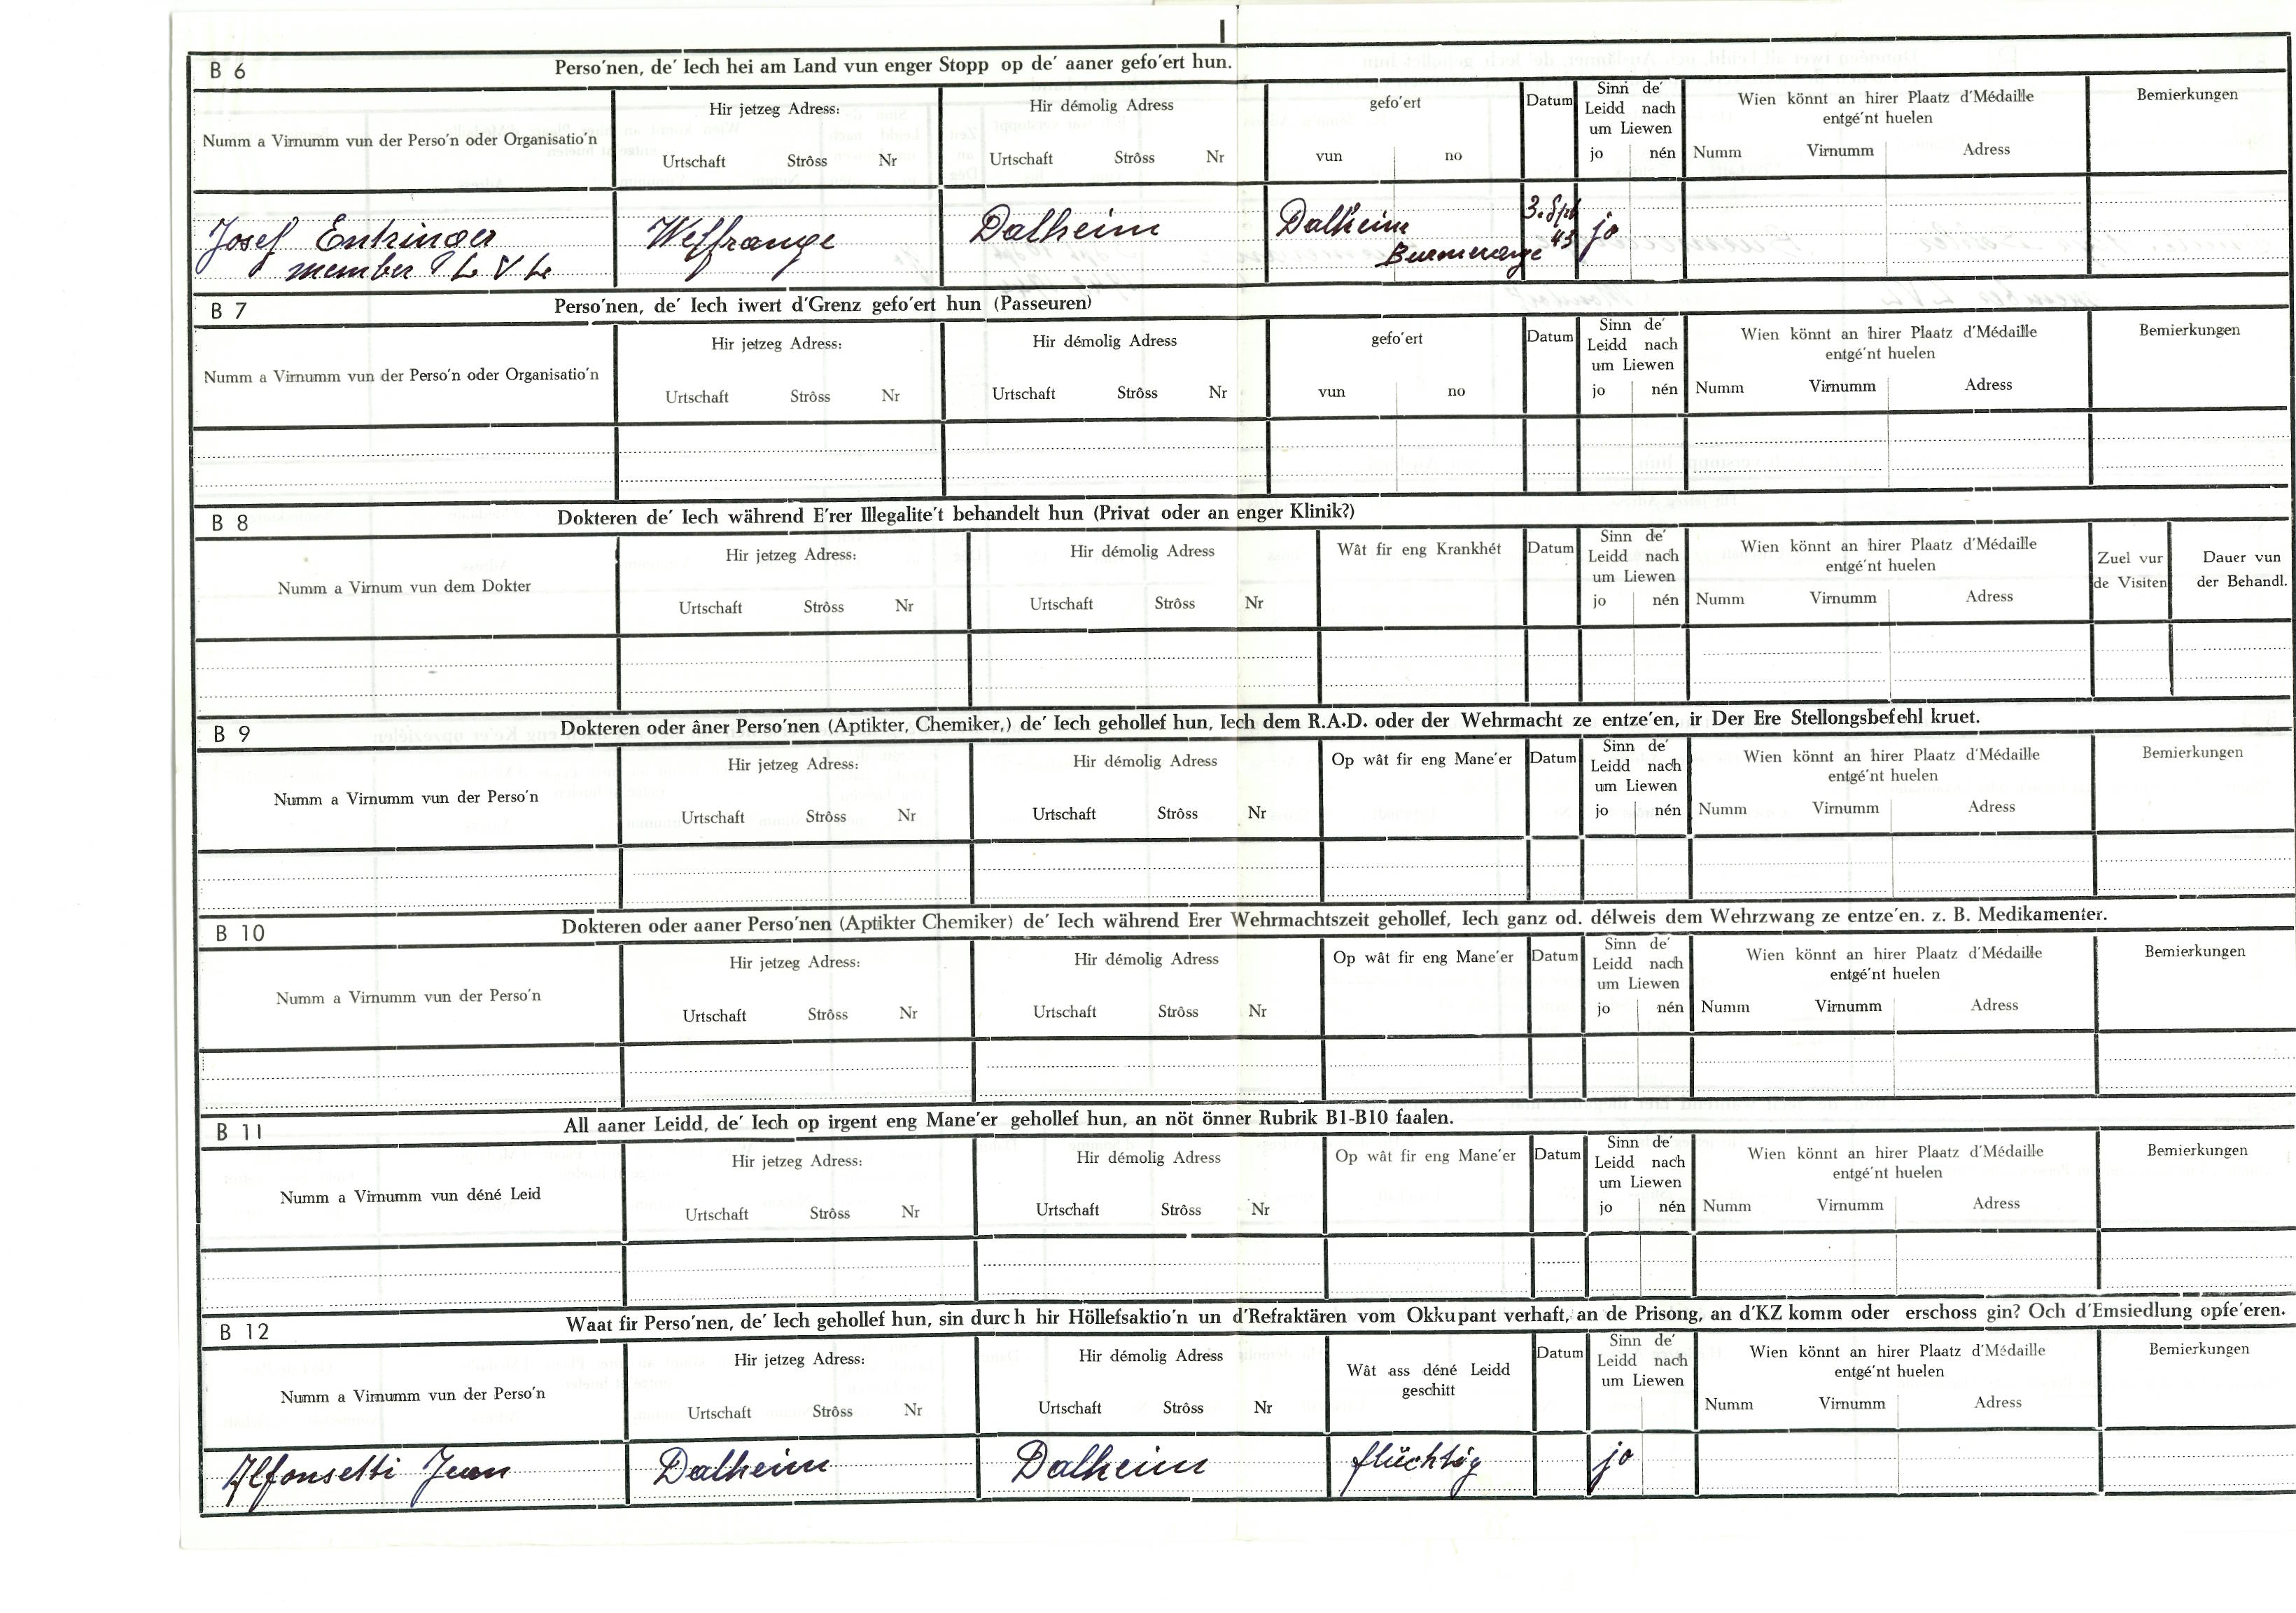 B 6 Perso'nen, de' Iech hei am Land vun enger Stopp op de' aaner gefo'ert hun.
Numm a Virnumm vun der Perso'n oder Organisatio'n
Hir jetzeg Adress:
Urtschaft Strôss Nr
Hir démolig Adress
Urtschaft Strôss Nr
gefo'ert
vun no
Datum
Sinn de'
Leidd nach
um Liewen
jo nén
Wien könnt an hirer Plaatz d'Médaille
entgé'nt huelen
Numm Virnumm Adress
Bemierkungen
Josef Entringer
member L V L
Welfrange
Dalheim
Dalheim
Burmerange
3. Spt
43
jo
B 7 Perso'nen, de' Iech iwert d'Grenz gefo'ert hun (Passeuren)
Numm a Virnumm vun der Perso'n oder Organisatio'n
Hir jetzeg Adress:
Urtschaft Strôss Nr
Hir démolig Adress
Urtschaft Strôss Nr
gefo'ert
vun no
Datum
Sinn de'
Leidd nach
um Liewen
jo nén
Wien könnt an hirer Plaatz d'Médaille
entgé'nt huelen
Numm Virnumm Adress
Bemierkungen
B 8 Dokteren de' Iech während E'rer Illegalite't behandelt hun (Privat oder an enger Klinik?)
Numm a Virnum vun dem Dokter
Hir jetzeg Adress:
Urtschaft Strôss Nr
Hir démolig Adress
Urtschaft Strôss Nr
Wât fir eng Krankhét
Datum
Sinn de'
Leidd nach
um Liewen
jo nén
Wien könnt an hirer Plaatz d'Médaille
entgé'nt huelen
Numm Virnumm Adress
Zuel vur
de Visiten
Dauer vun
der Behandl.
B 9 Dokteren oder âner Perso'nen (Aptikter, Chemiker,) de' Iech gehollef hun, Iech dem R.A.D. oder der Wehrmacht ze entze'en, ir Der Ere Stellongsbefehl kruet.
Numm a Virnumm vun der Perso'n
Hir jetzeg Adress:
Urtschaft Strôss Nr
Hir démolig Adress
Urtschaft Strôss Nr
Op wât fir eng Mane'er
Datum
Sinn de'
Leidd nach
um Liewen
jo nén
Wien könnt an hirer Plaatz d'Médaille
entgé'nt huelen
Numm Virnumm Adress
Bemierkungen
B 10 Dokteren oder aaner Perso'nen (Aptikter Chemiker) de' Iech während Erer Wehrmachtszeit gehollef, Iech ganz od. délweis dem Wehrzwang ze entze'en. z. B. Medikamenter.
Numm a Virnumm vun der Perso'n
Hir jetzeg Adress:
Urtschaft Strôss Nr
Hir démolig Adress
Urtschaft Strôss Nr
Op wât fir eng Mane'er
Datum
Sinn de'
Leidd nach
um Liewen
jo nén
Wien könnt an hirer Plaatz d'Médaille
entgé'nt huelen
Numm Virnumm Adress
Bemierkungen
B 11 All aaner Leidd, de' Iech op irgent eng Mane'er gehollef hun, an nöt önner Rubrik B1-B10 faalen.
Numm a Virnumm vun déné Leid
Hir jetzeg Adress:
Urtschaft Strôss Nr
Hir démolig Adress
Urtschaft Strôss Nr
Op wât fir eng Mane'er
Datum
Sinn de'
Leidd nach
um Liewen
jo nén
Wien könnt an hirer Plaatz d'Médaille
entgé'nt huelen
Numm Virnumm Adress
Bemierkungen
B 12 Waat fir Perso'nen, de' Iech gehollef hun, sin durch hir Höllefsaktio'n un d'Refraktären vom Okkupant verhaft, an de Prisong, an d'KZ komm oder erschoss gin? Och d'Emsiedlung opfe'eren.
Numm a Virnumm vun der Perso'n
Hir jetzeg Adress:
Urtschaft Strôss Nr
Hir démolig Adress
Urtschaft Strôss Nr
Wât ass déné Leidd
geschitt
Datum
Sinn de'
Leidd nach
um Liewen
Wien könnt an hirer Plaatz d'Médaille
entgé'nt huelen
Numm Virnumm Adress
Bemierkungen
Alfonsetti Jean
Dalheim
Dalheim
flüchtig
jo